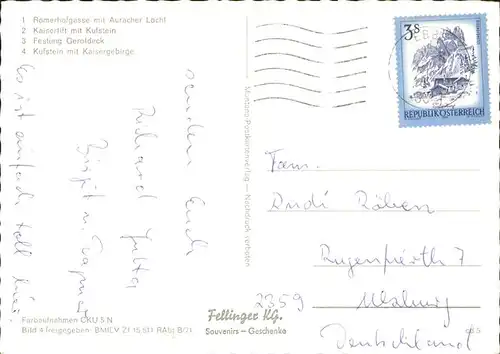 1 Römerhofgasse mit Auracher Löchl
2 Kaiserlift mit Kufstein
3 Festung Geroldseck
4 Kufstein mit Kaisergebirge
Es ist einfach toll hier.
senden Euch
Richard Jutta
Birgit u. Dagmar
Farbaufnahmen CKU S.N.
Bild 4 freigegeben: BMfLV
Fellinger KG.
Souvenirs – Geschenke
Montana-Postkartenverlag – Nachdruck verboten
3 S
REPUBLIK ÖSTERREICH
Fam.
Rudi Röben
7
2359
Deutschland